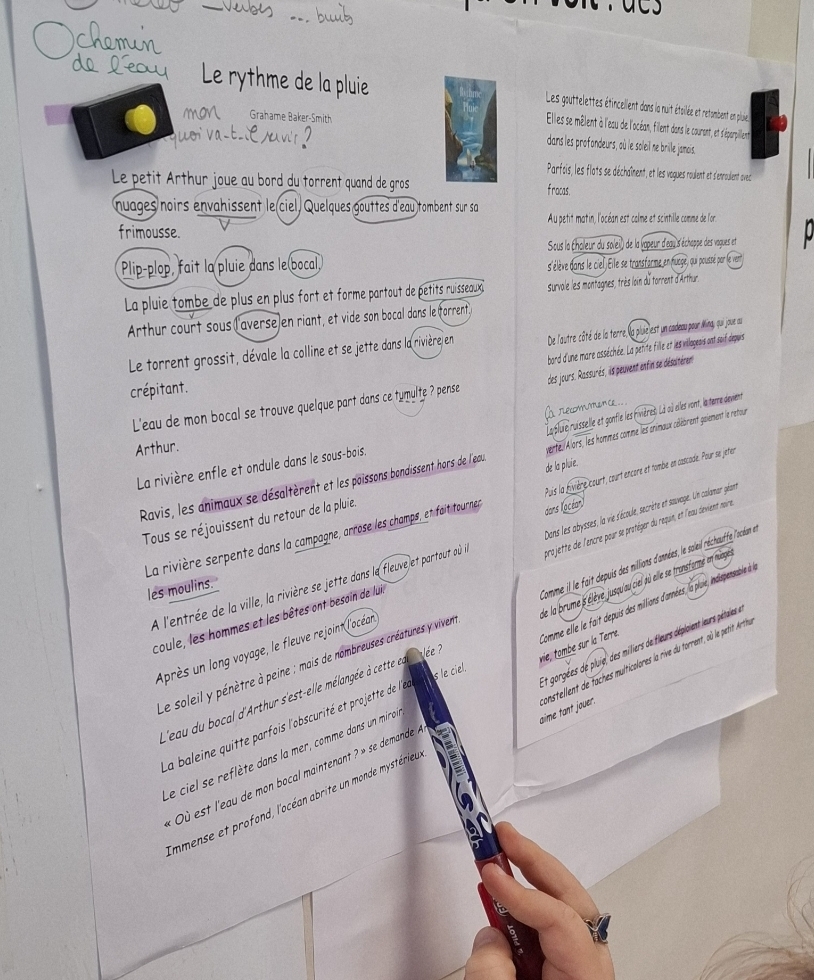 verbes ... bruits
voit : des
chemin
de l'eau
Le rythme de la pluie
Grahame Baker-Smith
mon
quoi va-t-il servir ?
Rythme
Pluie
Le petit Arthur joue au bord du torrent quand de gros
nuages noirs envahissent le ciel. Quelques gouttes d'eau tombent sur sa
frimousse.
Plip-plop, fait la pluie dans le bocal.
La pluie tombe de plus en plus fort et forme partout de petits ruisseaux.
Arthur court sous l'averse en riant, et vide son bocal dans le torrent.
Le torrent grossit, dévale la colline et se jette dans la rivière en
crépitant.
L'eau de mon bocal se trouve quelque part dans ce tumulte ? pense
Arthur.
La rivière enfle et ondule dans le sous-bois.
Ravis, les animaux se désaltèrent et les poissons bondissent hors de l'eau.
Tous se réjouissent du retour de la pluie.
La rivière serpente dans la campagne, arrose les champs, et fait tourner
les moulins.
A l'entrée de la ville, la rivière se jette dans le fleuve et partout où il
coule, les hommes et les bêtes ont besoin de lui.
Après un long voyage, le fleuve rejoint l'océan.
Le soleil y pénètre à peine ; mais de nombreuses créatures y vivent.
L'eau du bocal d'Arthur s'est-elle mélangée à cette eau ?
La baleine quitte parfois l'obscurité et projette de l'eau le ciel.
Le ciel se reflète dans la mer, comme dans un miroir.
« Où est l'eau de mon bocal maintenant ? » se demande
Immense et profond, l'océan abrite un monde mystérieux.
Les gouttelettes étincellent dans la nuit étoilée et retombent en pluie.
Elles se mêlent à l'eau de l'océan, filent dans le courant, et s'éparpillent
dans les profondeurs, où le soleil ne brille jamais.
Parfois, les flots se déchaînent, et les vagues roulent et s'enroulent avec
fracas.
Au petit matin, l'océan est calme et scintille comme de l'or.
Sous la chaleur du soleil, de la vapeur d'eau s'échappe des vagues et
s'élève dans le ciel. Elle se transforme en nuage, qui poussé par le vent
survole les montagnes, très loin du torrent d'Arthur.
De l'autre côté de la terre, la pluie est un cadeau pour Ming, qui joue au
bord d'une mare asséchée. La petite fille et les villageois ont soif depuis
des jours. Rassurés, ils peuvent enfin se désaltérer!
Ça recommence...
La pluie ruisselle et gonfle les rivières. Là où elles vont, la terre devient
verte. Alors, les hommes comme les animaux célèbrent gaiement le retour
de la pluie.
Puis la rivière court, court encore et tombe en cascade. Pour se jeter
dans l'océan.
Dans les abysses, la vie s'écoule, secrète et sauvage. Un calamar géant
projette de l'encre pour se protéger du requin, et l'eau devient noire.
Comme il le fait depuis des millions d'années, le soleil réchauffe l'océan et
de la brume s'élève jusqu'au ciel où elle se transforme en nuages.
Comme elle le fait depuis des millions d'années, la pluie, indispensable à la
vie, tombe sur la Terre.
Et gorgées de pluie, des milliers de fleurs déploient leurs pétales et
constellent de taches multicolores la rive du torrent, où le petit Arthur
aime tant jouer.
PILOT